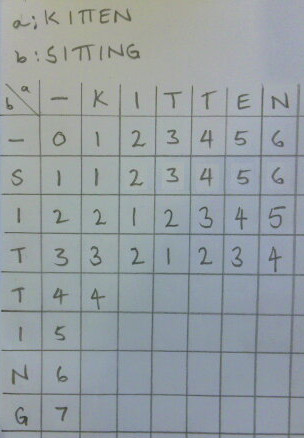 a: KITTEN
b: SITTING
b\a – K I T T E N
– 0 1 2 3 4 5 6
S 1 1 2 3 4 5 6
I 2 2 1 2 3 4 5
T 3 3 2 1 2 3 4
T 4 4
I 5
N 6
G 7